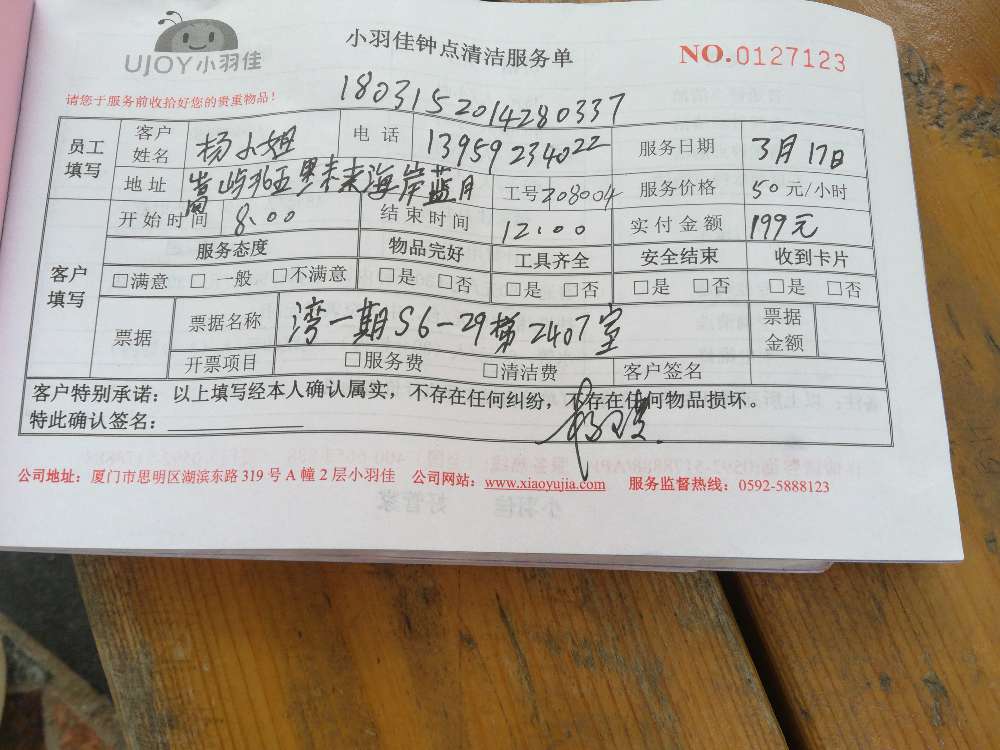 UJOY小羽佳
小羽佳钟点清洁服务单
NO.0127123
请您于服务前收拾好您的贵重物品!
1803152014280337
员工填写 客户姓名 杨小姐 电话 13959234022 服务日期 3月17日
地址 嵩屿 未来海岸蓝月 工号 208004 服务价格 50元/小时
客户填写 开始时间 8:00 结束时间 12:00 实付金额 199元
服务态度 物品完好 工具齐全 安全结束 收到卡片
□满意 □一般 □不满意 □是 □否 □是 □否 □是 □否 □是 □否
票据 票据名称 湾一期S6-29梯2407室 票据金额
开票项目 □服务费 □清洁费 客户签名
客户特别承诺：以上填写经本人确认属实，不存在任何纠纷，不存在任何物品损坏。
特此确认签名：
公司地址：厦门市思明区湖滨东路319号A幢2层小羽佳 公司网站：www.xiaoyujia.com 服务监督热线：0592-5888123